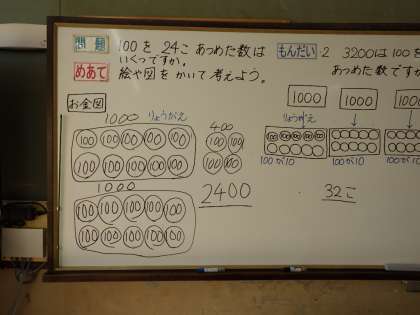 問題 100を 24こ あつめた数は
いくつですか。
めあて 絵や図を かいて 考えよう。
お金図
1000 りょうがえ
100 100 100 100 100
100 100 100 100 100
1000
100 100 100 100 100
100 100 100 100 100
400
100 100
100 100
2400
もんだい 2 3200は 100を
あつめた数ですか
1000 1000 1000
りょうがえ
100 100 100 100 100
100が10 100が10 100が
32こ